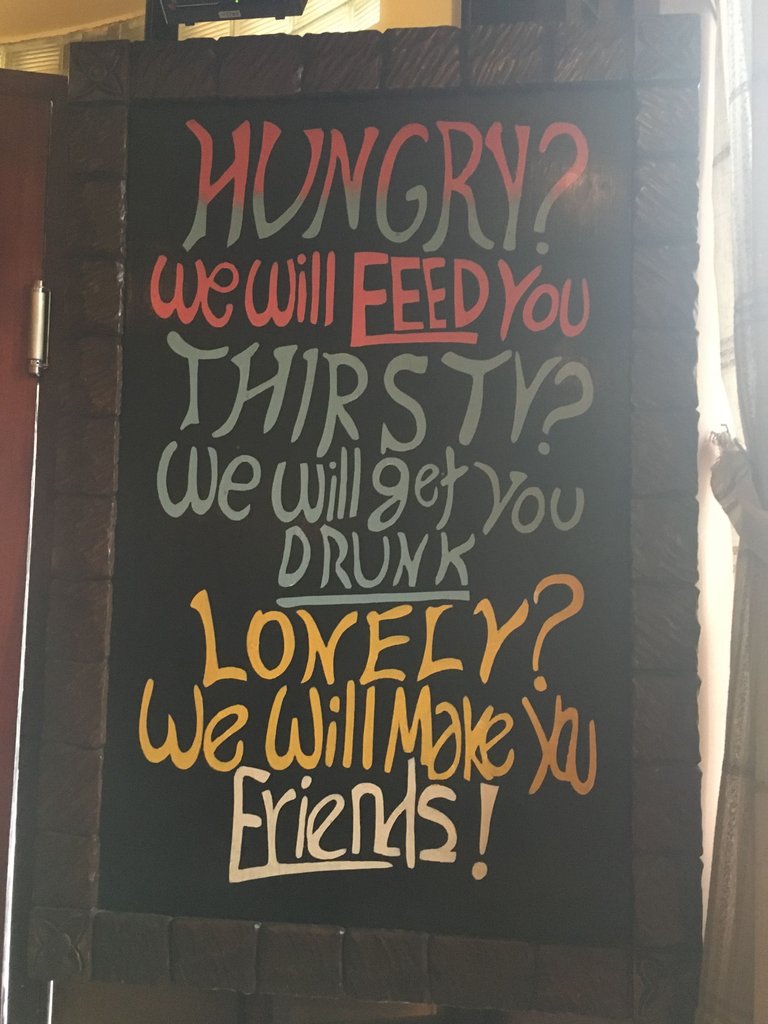 HUNGRY?
We will FEED You
THIRSTY?
We will get You
DRUNK
LONELY?
We Will Make You
Friends!